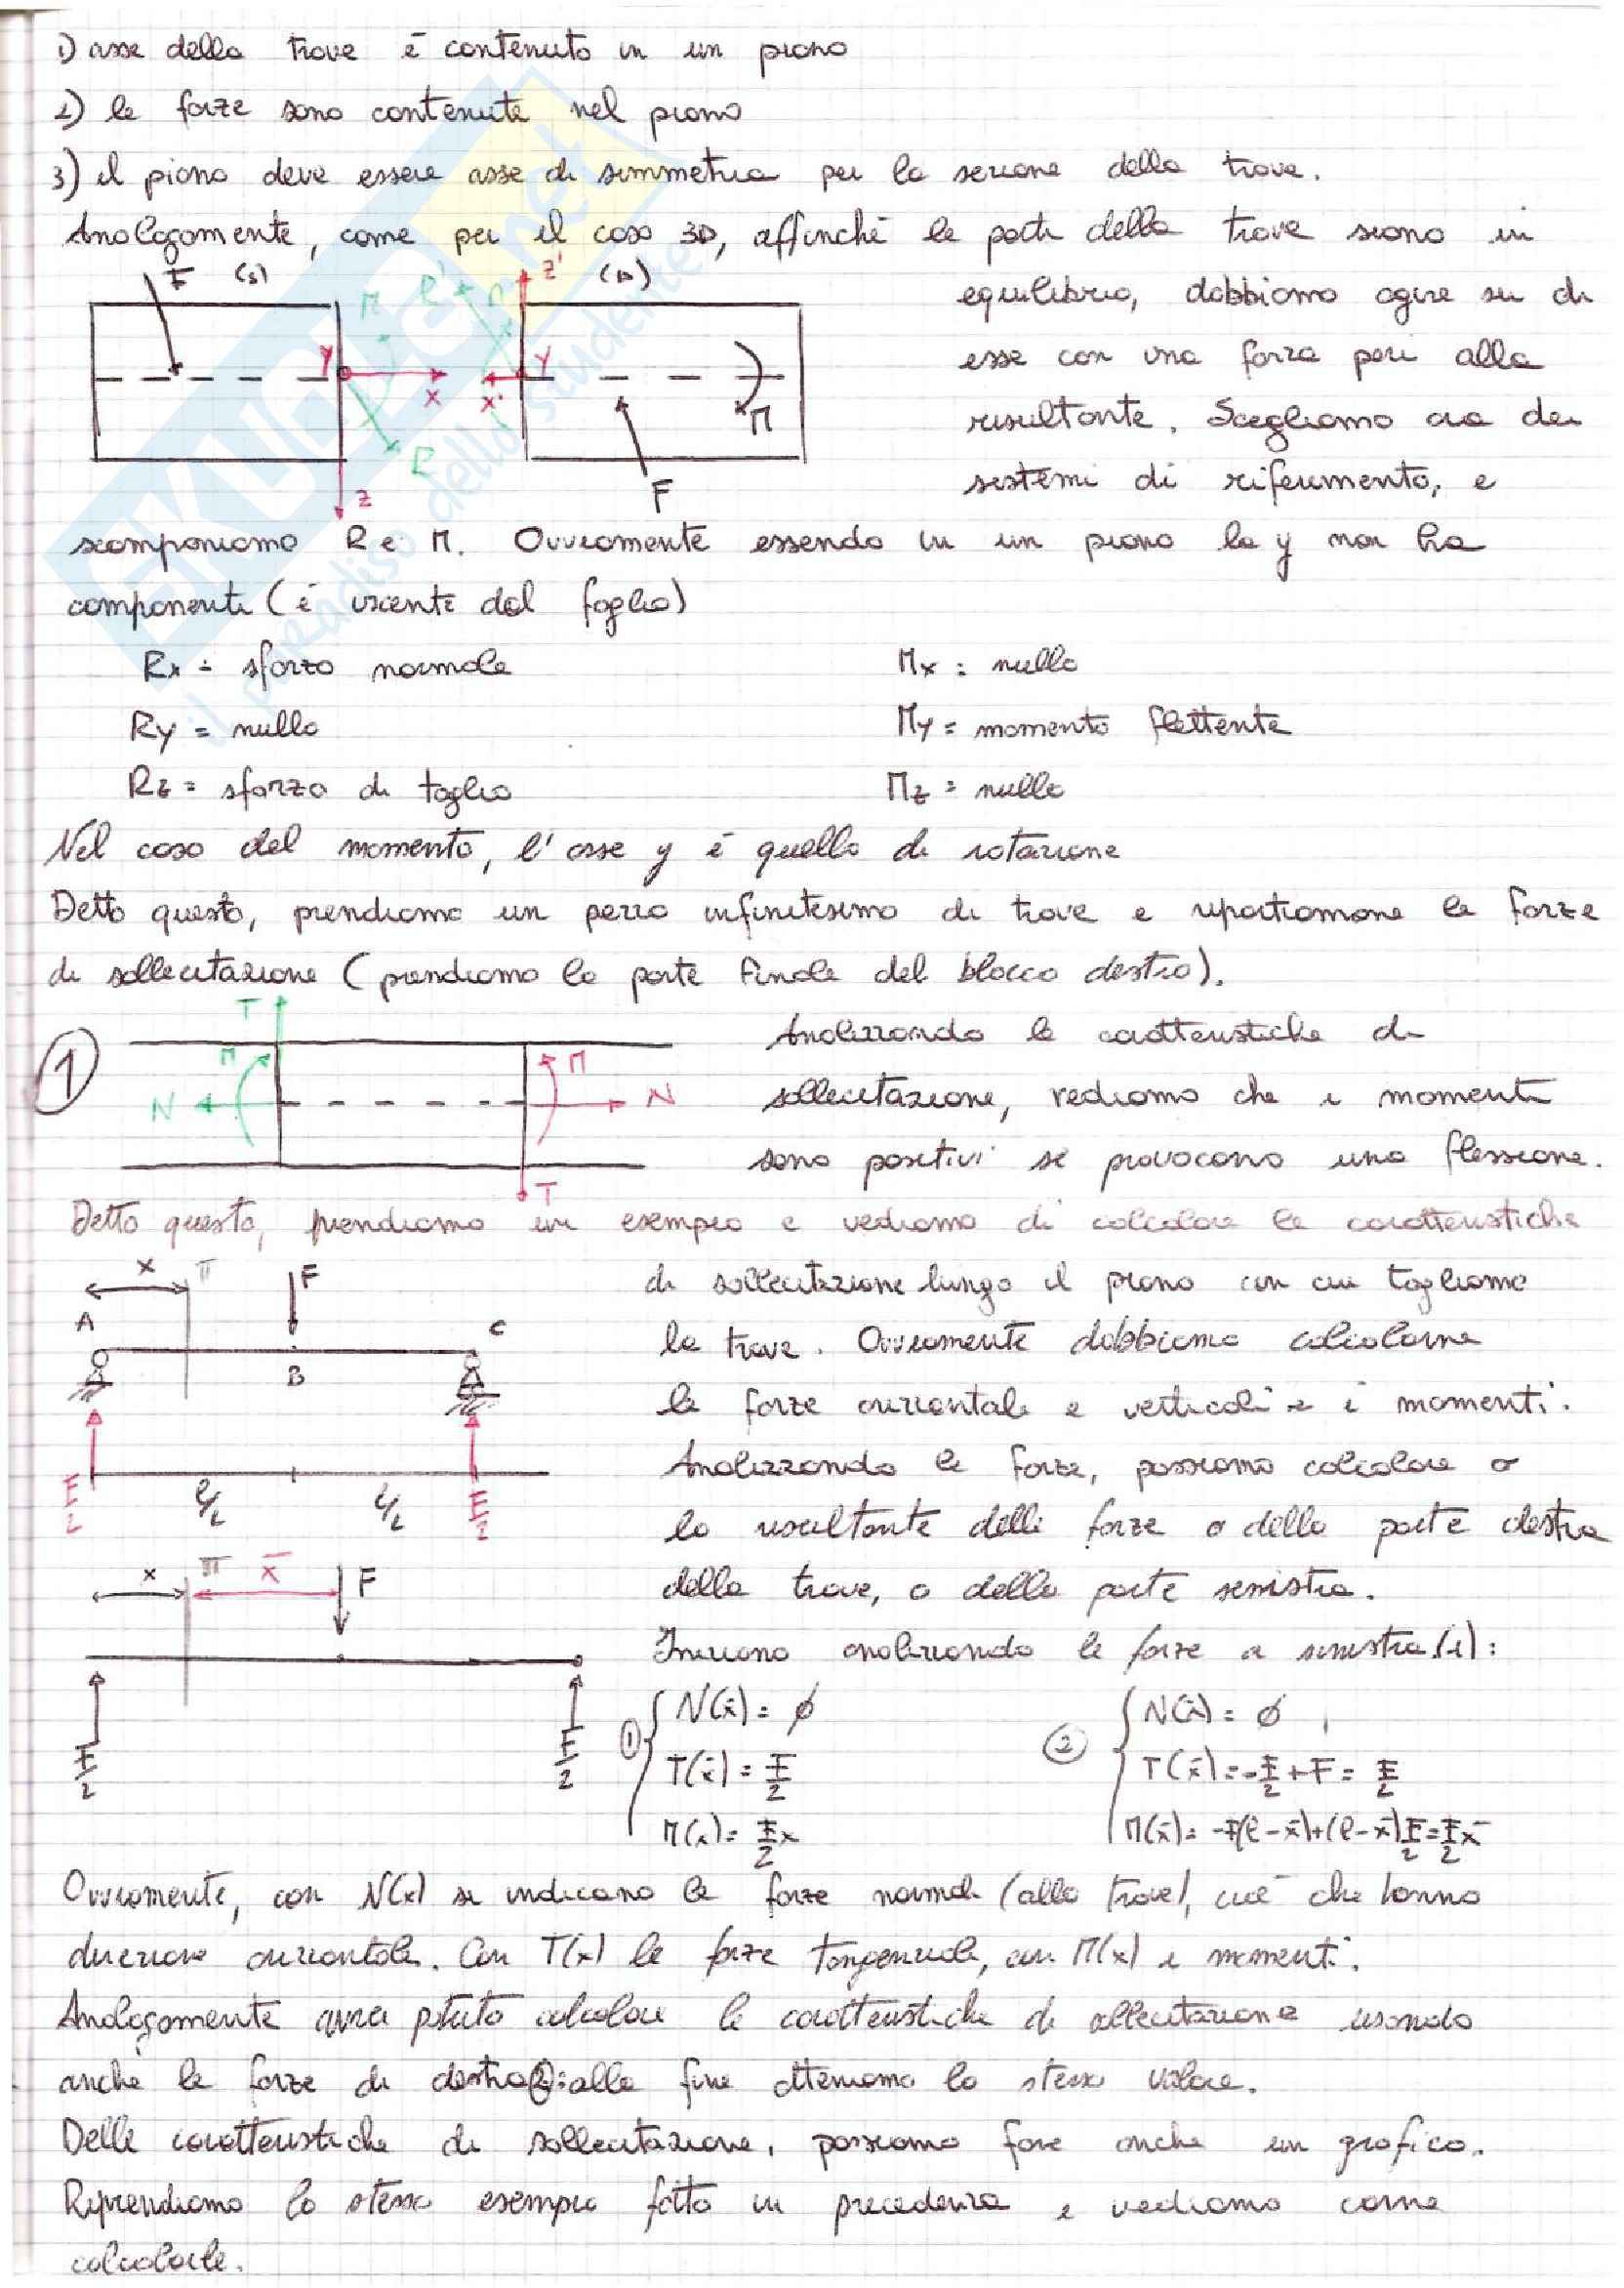 1) asse della trave è contenuto in un piano
2) le forze sono contenute nel piano
3) il piano deve essere asse di simmetria per la sezione della trave.
Analogamente, come per il caso 3D, affinché le parti della trave siano in
F (S) M R' M z' (D)
equilibrio, dobbiamo agire su di
esse con una forza pari alla
y x x' y M
risultante. Scegliamo ora dei
R z F
sistemi di riferimento, e
scomponiamo R e M. Ovviamente essendo in un piano la y non ha
componenti (è uscente dal foglio)
Rx = sforzo normale Mx = nullo
Ry = nullo My = momento flettente
Rz = sforzo di taglio Mz = nullo
Nel caso del momento, l'asse y è quello di rotazione
Detto questo, prendiamo un pezzo infinitesimo di trave e riportiamone le forze
di sollecitazione (prendiamo la parte finale del blocco destro).
1 T M N M N T
Analizzando le caratteristiche di
sollecitazione, vediamo che i momenti
sono positivi se provocano una flessione.
Detto questo, prendiamo un esempio e vediamo di calcolare le caratteristiche
x π F
di sollecitazione lungo il piano con cui tagliamo
A B C
la trave. Ovviamente dobbiamo calcolarne
le forze orizzontali e verticali e i momenti.
F/2 l/2 l/2 F/2
Analizzando le forze, possiamo calcolare o
la risultante delle forze o della parte destra
x π x̄ F
della trave, o della parte sinistra.
Iniziamo analizzando le forze a sinistra (1):
F/2 F/2
① N(x̄) = ∅ ② N(x̄) = ∅
T(x̄) = F/2 T(x̄) = -F/2 + F = F/2
M(x) = F/2 x M(x̄) = -F(l-x̄)+(l-x̄)F/2 = F/2 x̄
Ovviamente, con N(x) si indicano le forze normali (alla trave), cioè che hanno
direzione orizzontale. Con T(x) le forze tangenziali, con M(x) i momenti.
Analogamente avrei potuto calcolare le caratteristiche di sollecitazione usando
anche le forze di destra (2): alla fine otteniamo lo stesso valore.
Delle caratteristiche di sollecitazione, possiamo fare anche un grafico.
Riprendiamo lo stesso esempio fatto in precedenza e vediamo come
calcolarle.
SKUOLA.net
il paradiso dello studente